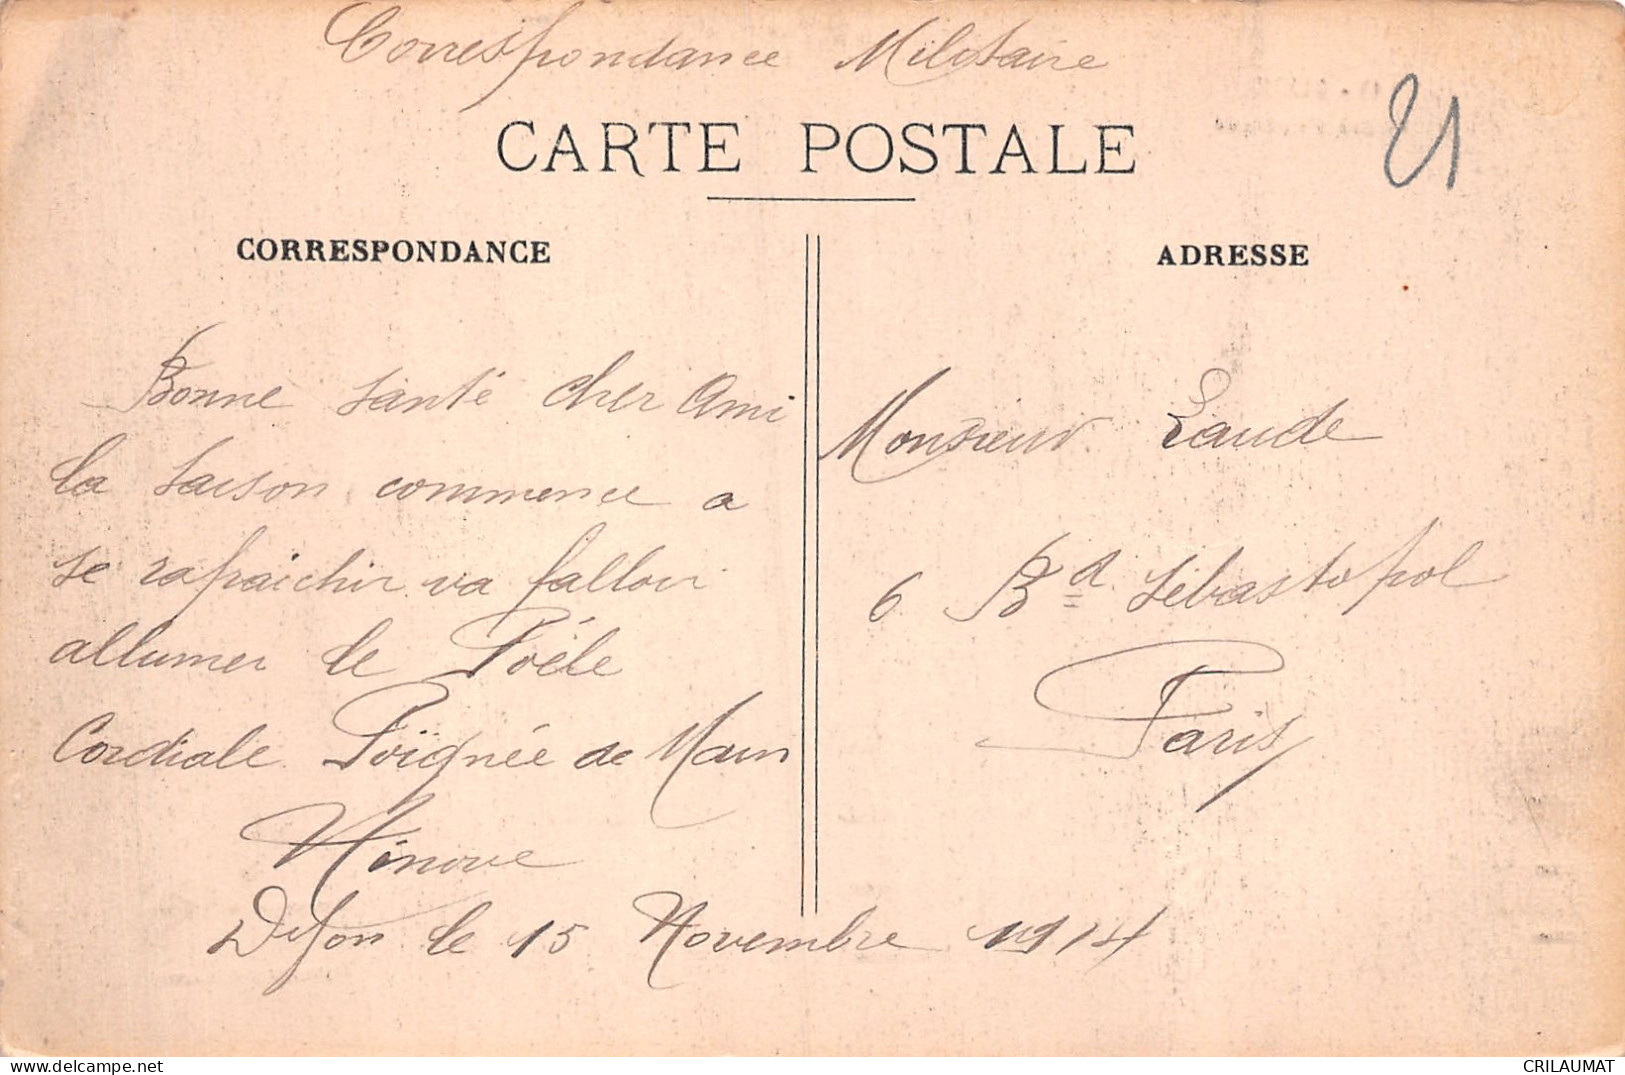 Correspondance Militaire
CARTE POSTALE
21
CORRESPONDANCE
Bonne santé cher Ami
la saison commence a
se rafraichir va falloir
allumer le Poêle
Cordiale Poignée de Main
Dijon le 15 Novembre 1914
ADRESSE
Monsieur Laude
6 Bd Sébastopol
Paris
delcampe.net
CRILAUMAT